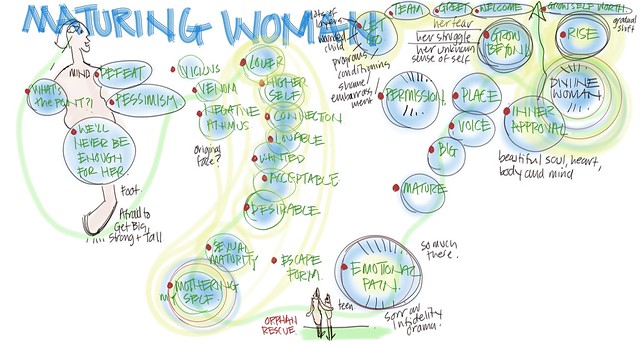 MATURING WOMAN
MIND
DEFEAT
WHAT'S
the POINT?!
PESSIMISM
WE'LL
NEVER BE
ENOUGH
FOR HER.
Foot.
Afraid to
Get Big,
Strong + Tall.
VICIOUS
VENOM
NEGATIVE
ANIMUS
original
face?
LOVER
HIGHER
SELF
CONNECTON
LOVABLE
WANTED
ACCEPTABLE
DESIRABLE
SEXUAL
MATURITY
MOTHERING
MY SELF.
ESCAPE
FORM.
ORPHAN
RESCUE.
teen.
EMOTIONAL
PAIN.
so much
there.
infidelity
drama.
LET
GO
layers
wounded
child
conditioning
shame,
embarrass
ment
TEAM
GREET
WELCOME
GROW SELF WORTH
her fear
her struggle
her unknown
sense of self
GROW
BEYOND
RISE
gradual
shift
PERMISSION
PLACE
VOICE
BIG
MATURE
DIVINE
WOMAN
INNER
APPROVAL
beautiful soul, heart,
body and mind